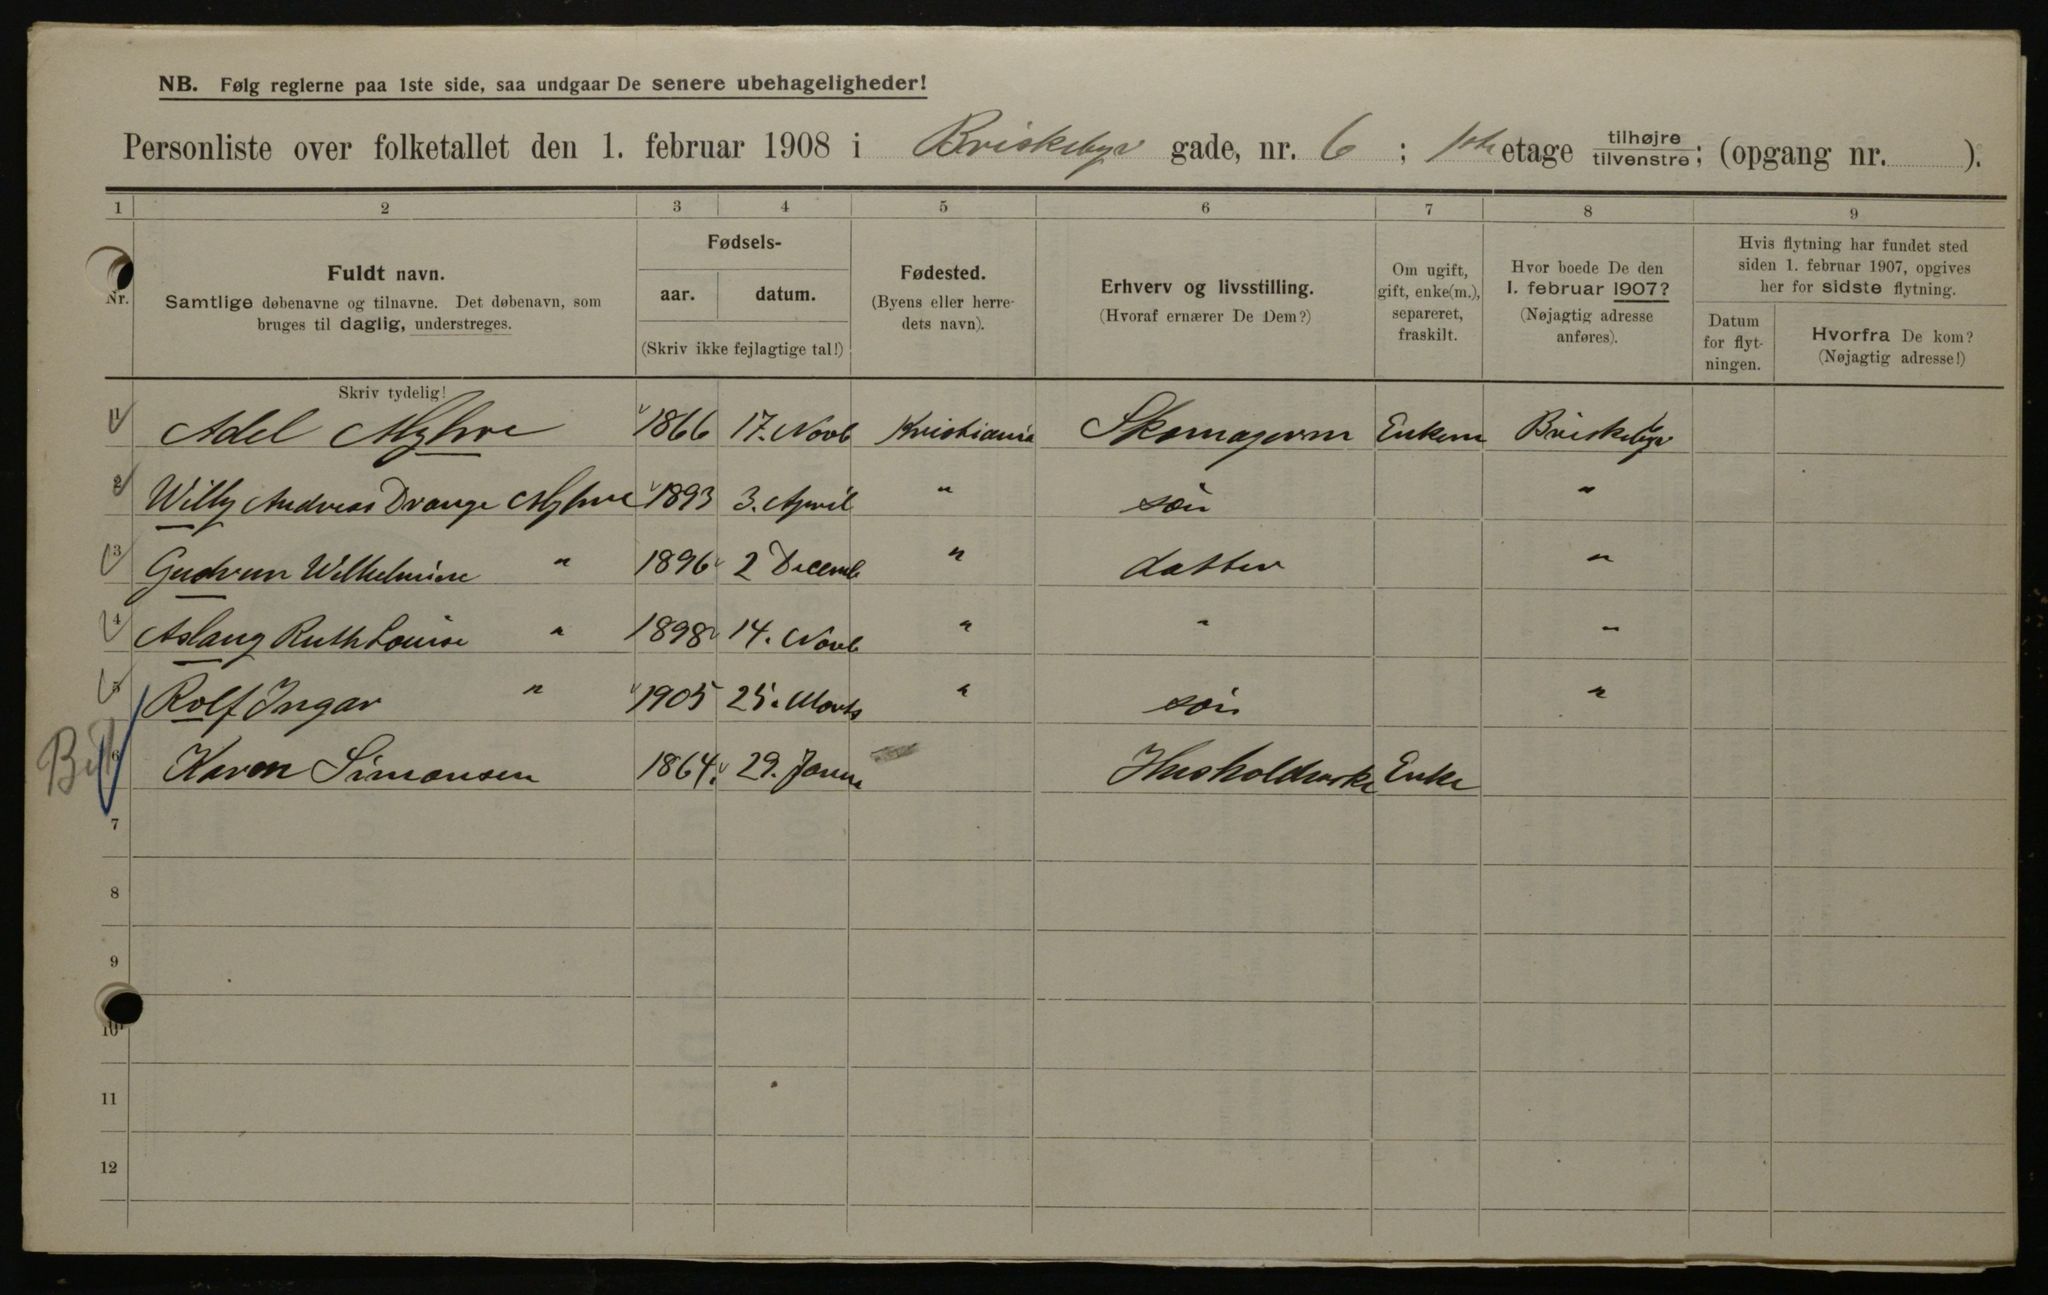 NB. Følg reglerne paa 1ste side, saa undgaar De senere ubehageligheder!
Personliste over folketallet den 1. februar 1908 i Briskebyv gade, nr. 6 ; 1ste etage tilhøjre tilvenstre; (opgang nr. ).
1 2 3 4 5 6 7 8 9
Nr.
Fuldt navn.
Samtlige døbenavne og tilnavne. Det døbenavn, som
bruges til daglig, understreges.
Skriv tydelig!
Fødsels-
aar. datum.
(Skriv ikke fejlagtige tal!)
Fødested.
(Byens eller herre-
dets navn).
Erhverv og livsstilling.
(Hvoraf ernærer De Dem?)
Om ugift,
gift, enke(m.),
separeret,
fraskilt.
Hvor boede De den
1. februar 1907?
(Nøjagtig adresse
anføres).
Hvis flytning har fundet sted
siden 1. februar 1907, opgives
her for sidste flytning.
Datum
for flyt-
ningen.
Hvorfra De kom?
(Nøjagtig adresse!)
1 Adel Myhre 1866 17. Novb Kristiania Skomagerm Enkem Briskebyv
2 Willy Andreas Drange Myhre 1893 3. April " søn "
3 Gudrun Wilhelmine " 1896 2 Decemb " datter "
4 Aslaug Ruth Louise " 1898 14. Novb " " "
5 Rolf Ingar " 1905 25. Marts " søn "
6 Karen Simonsen 1864. 29. Janu Husholderske Enke
7
8
9
10
11
12